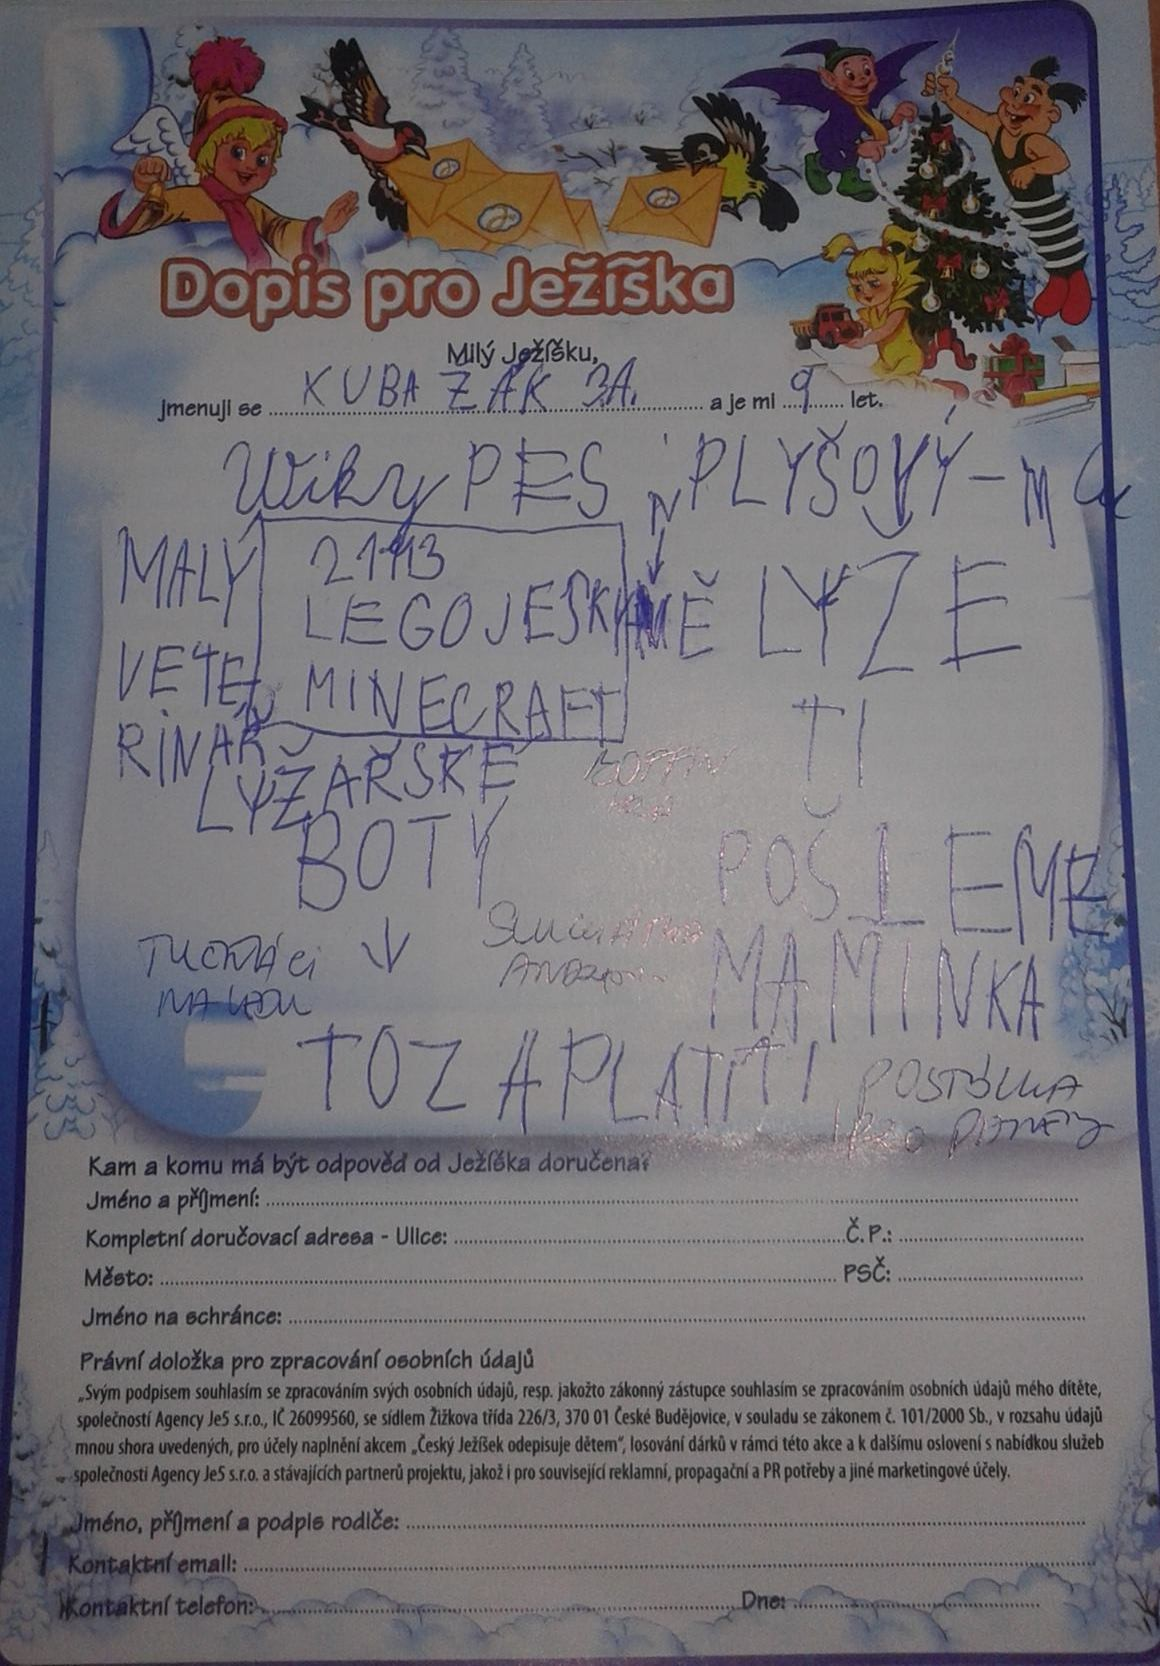 Dopis pro Ježíška
Milý Ježíšku,
jmenuji se KUBA ZÁK 3A. a je mi 9 let.
Wiky PES PLYŠOVÝ - ma
MALÝ
VETE
RINÁŘ
21113
LEGO JESKYNĚ
MINECRAFT
LYŽE
LYŽAŘSKÉ
BOTY
TI
POŠLEME
MAMINKA
TO ZAPLATÍ!
BOFFIN
TUČŇÁCI
NA LEDU
SLUCHÁTKA
Kam a komu má být odpověď od Ježíška doručena?
Jméno a příjmení:
Kompletní doručovací adresa - Ulice: Č.P.:
Město: PSČ:
Jméno na schránce:
Právní doložka pro zpracování osobních údajů
„Svým podpisem souhlasím se zpracováním svých osobních údajů, resp. jakožto zákonný zástupce souhlasím se zpracováním osobních údajů mého dítěte,
společností Agency Je5 s.r.o., IČ 26099560, se sídlem Žižkova třída 226/3, 370 01 České Budějovice, v souladu se zákonem č. 101/2000 Sb., v rozsahu údajů
mnou shora uvedených, pro účely naplnění akcem „Český Ježíšek odepisuje dětem“, losování dárků v rámci této akce a k dalšímu oslovení s nabídkou služeb
společnosti Agency Je5 s.r.o. a stávajících partnerů projektu, jakož i pro související reklamní, propagační a PR potřeby a jiné marketingové účely.
Jméno, příjmení a podpis rodiče:
Kontaktní email:
Kontaktní telefon: Dne: